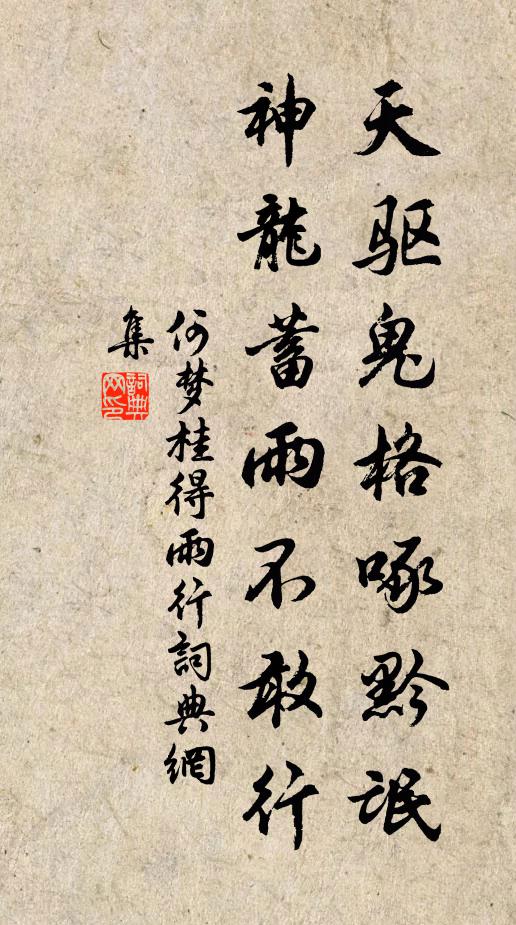 天驱鬼格啄黔氓
神龍蓄雨不敢行
何梦桂得雨行詞典網
集
詞典网印